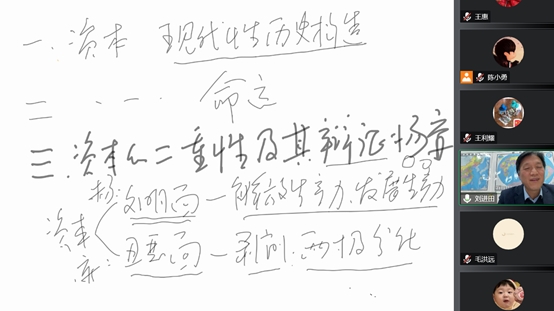 一、资本 现代性历史构造
二 命运
三、资本的二重性及其辩证扬弃
资本
扬: 文明面—解放生产力、发展生产力
弃: 丑恶面—剥削、两极分化
王惠
陈小勇
王利耀
刘进田
毛洪远